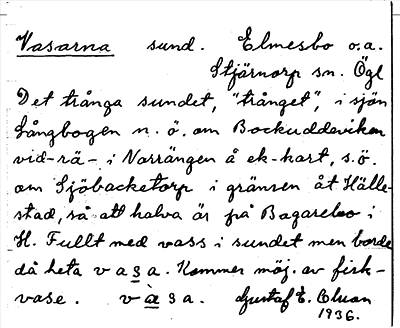 Vasarna sund. Elmesbo o.a.
Stjärnorp sn. Ögl
Det trånga sundet, "trånget", i sjön
Långbogen n. ö. om Bockuddeviken
vid-rä- i Norrängen å ek-kart, s.ö.
om Sjöbacketorp i gränsen åt Hälle-
stad, så att halva är på Bagarebo i
H. Fullt med vass i sundet men borde
då heta vasa. Kommer möj. av fisk-
vase. vàsa. Gustaf E.
1936.